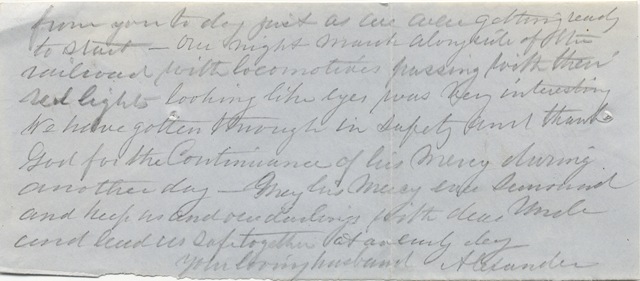 from you to day just as we were getting ready
to start — Our night march along side of the
railroad with locomotives passing with their
red lights looking like eyes was very interesting
We have gotten through in safety and thank
God for the Continuance of his Mercy during
another day — May his Mercy ever surround
and keep us and our darlings with dear Uncle
and lead us safe together at an early day
Your loving husband Alexander